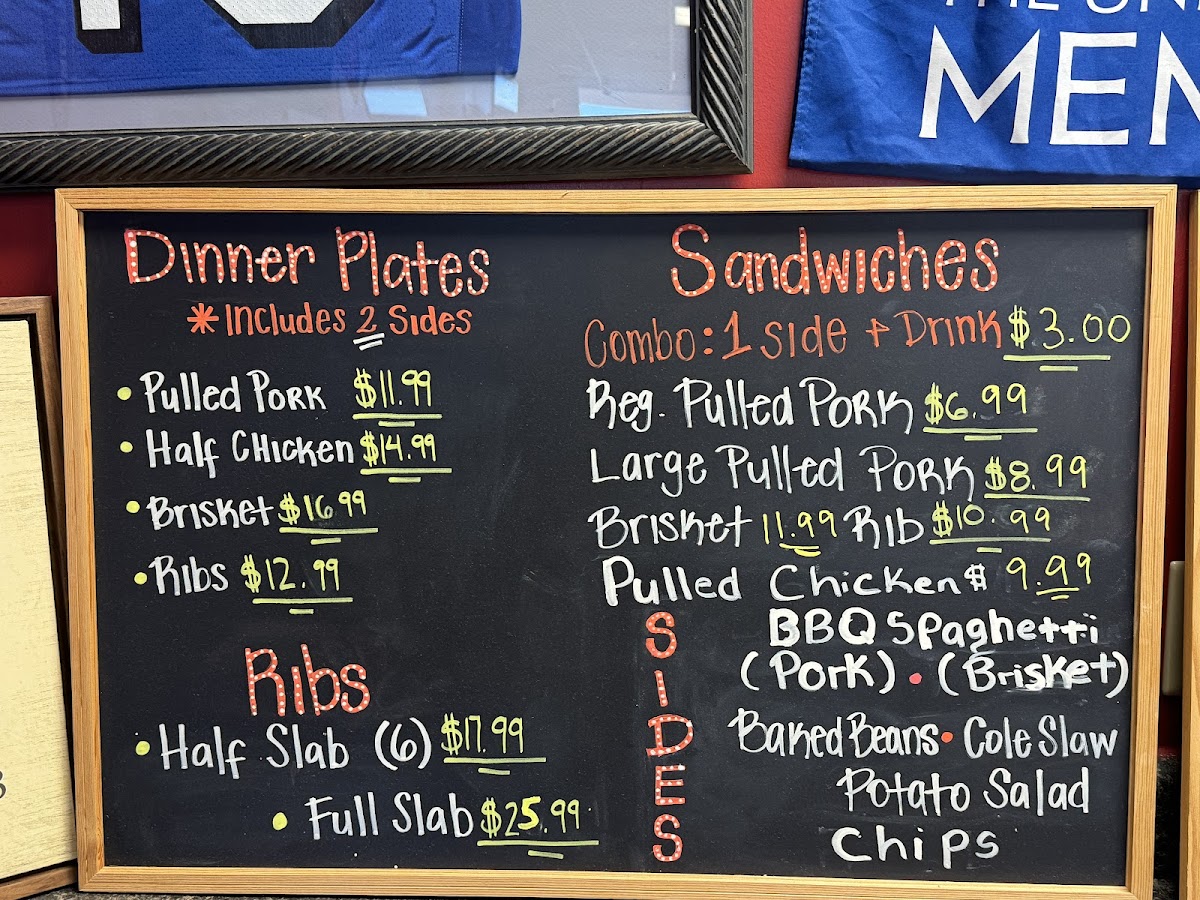 MEN
Dinner Plates
*Includes 2 Sides
• Pulled Pork $11.99
• Half Chicken $14.99
• Brisket $16.99
• Ribs $12.99
Ribs
• Half Slab (6) $17.99
• Full Slab $25.99
Sandwiches
Combo: 1 Side + Drink $3.00
Reg. Pulled Pork $6.99
Large Pulled Pork $8.99
Brisket 11.99 Rib $10.99
Pulled Chicken $9.99
SIDES
BBQ Spaghetti
(Pork) • (Brisket)
Baked Beans • Cole Slaw
Potato Salad
Chips